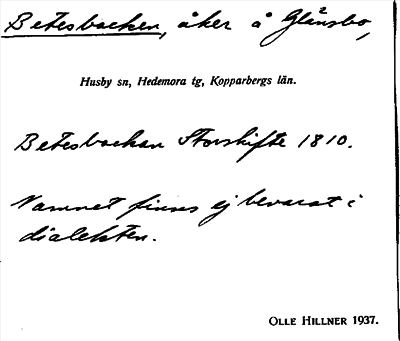 Betesbacken, åker å Glånsbo,
Husby sn, Hedemora tg, Kopparbergs län.
Betesbackan Storskifte 1810.
Namnet finns ej bevarat i
dialekten.
OLLE HILLNER 1937.